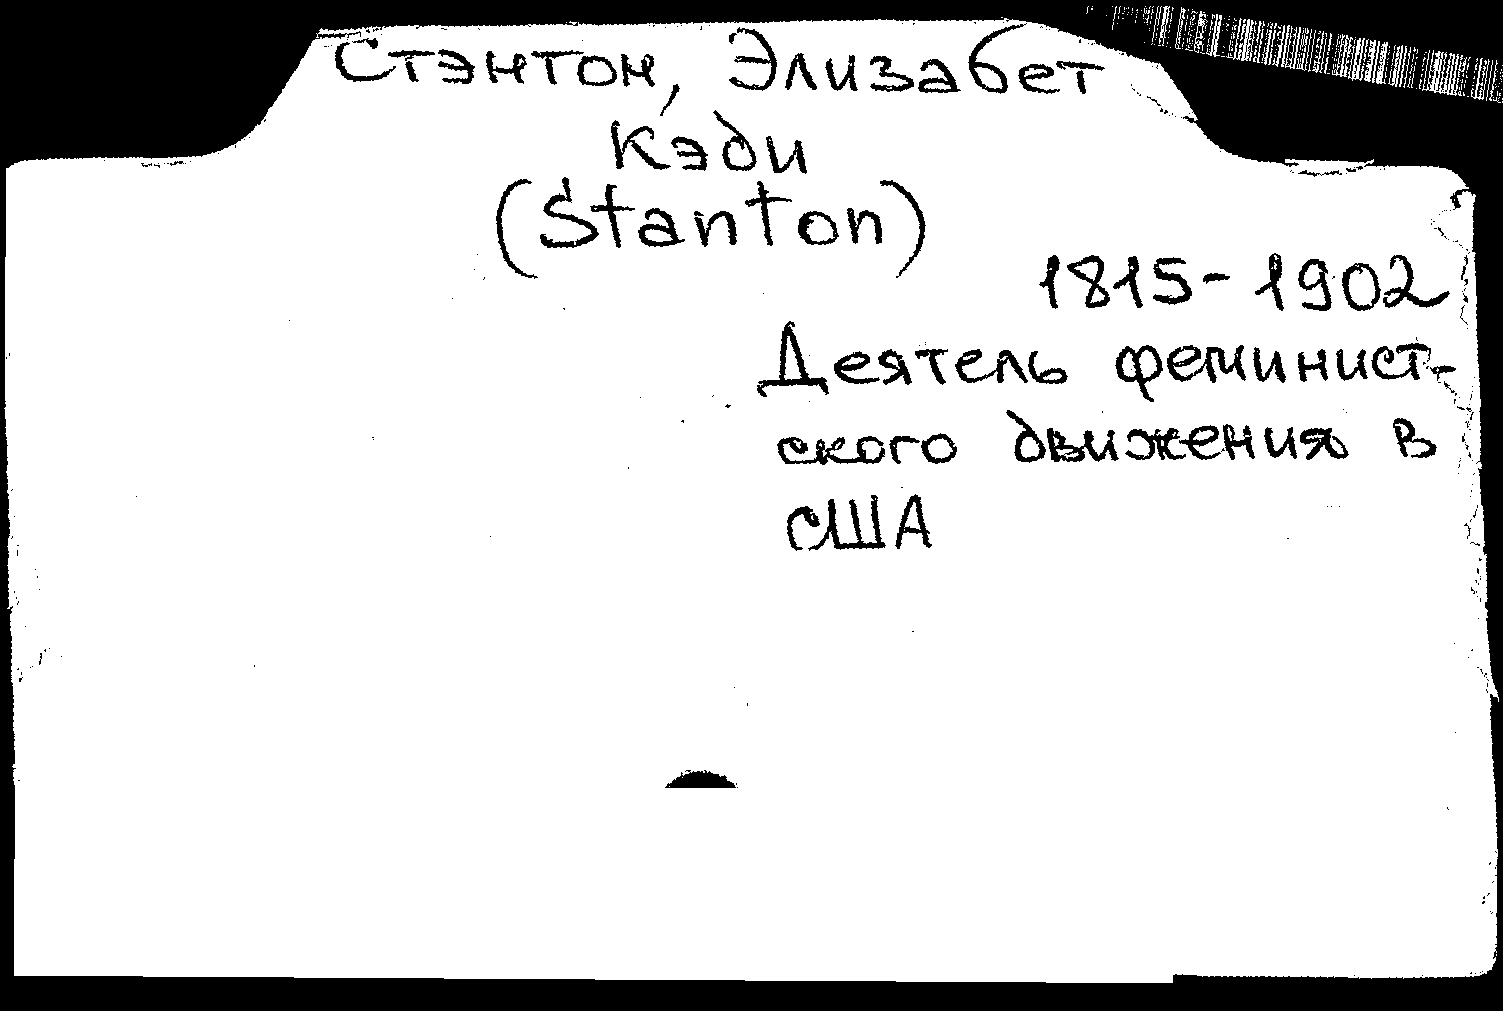 Стэнтон, Элизабет
Кэди
(Stanton)
1815-1902
Деятель феминист-
ского движения в
США